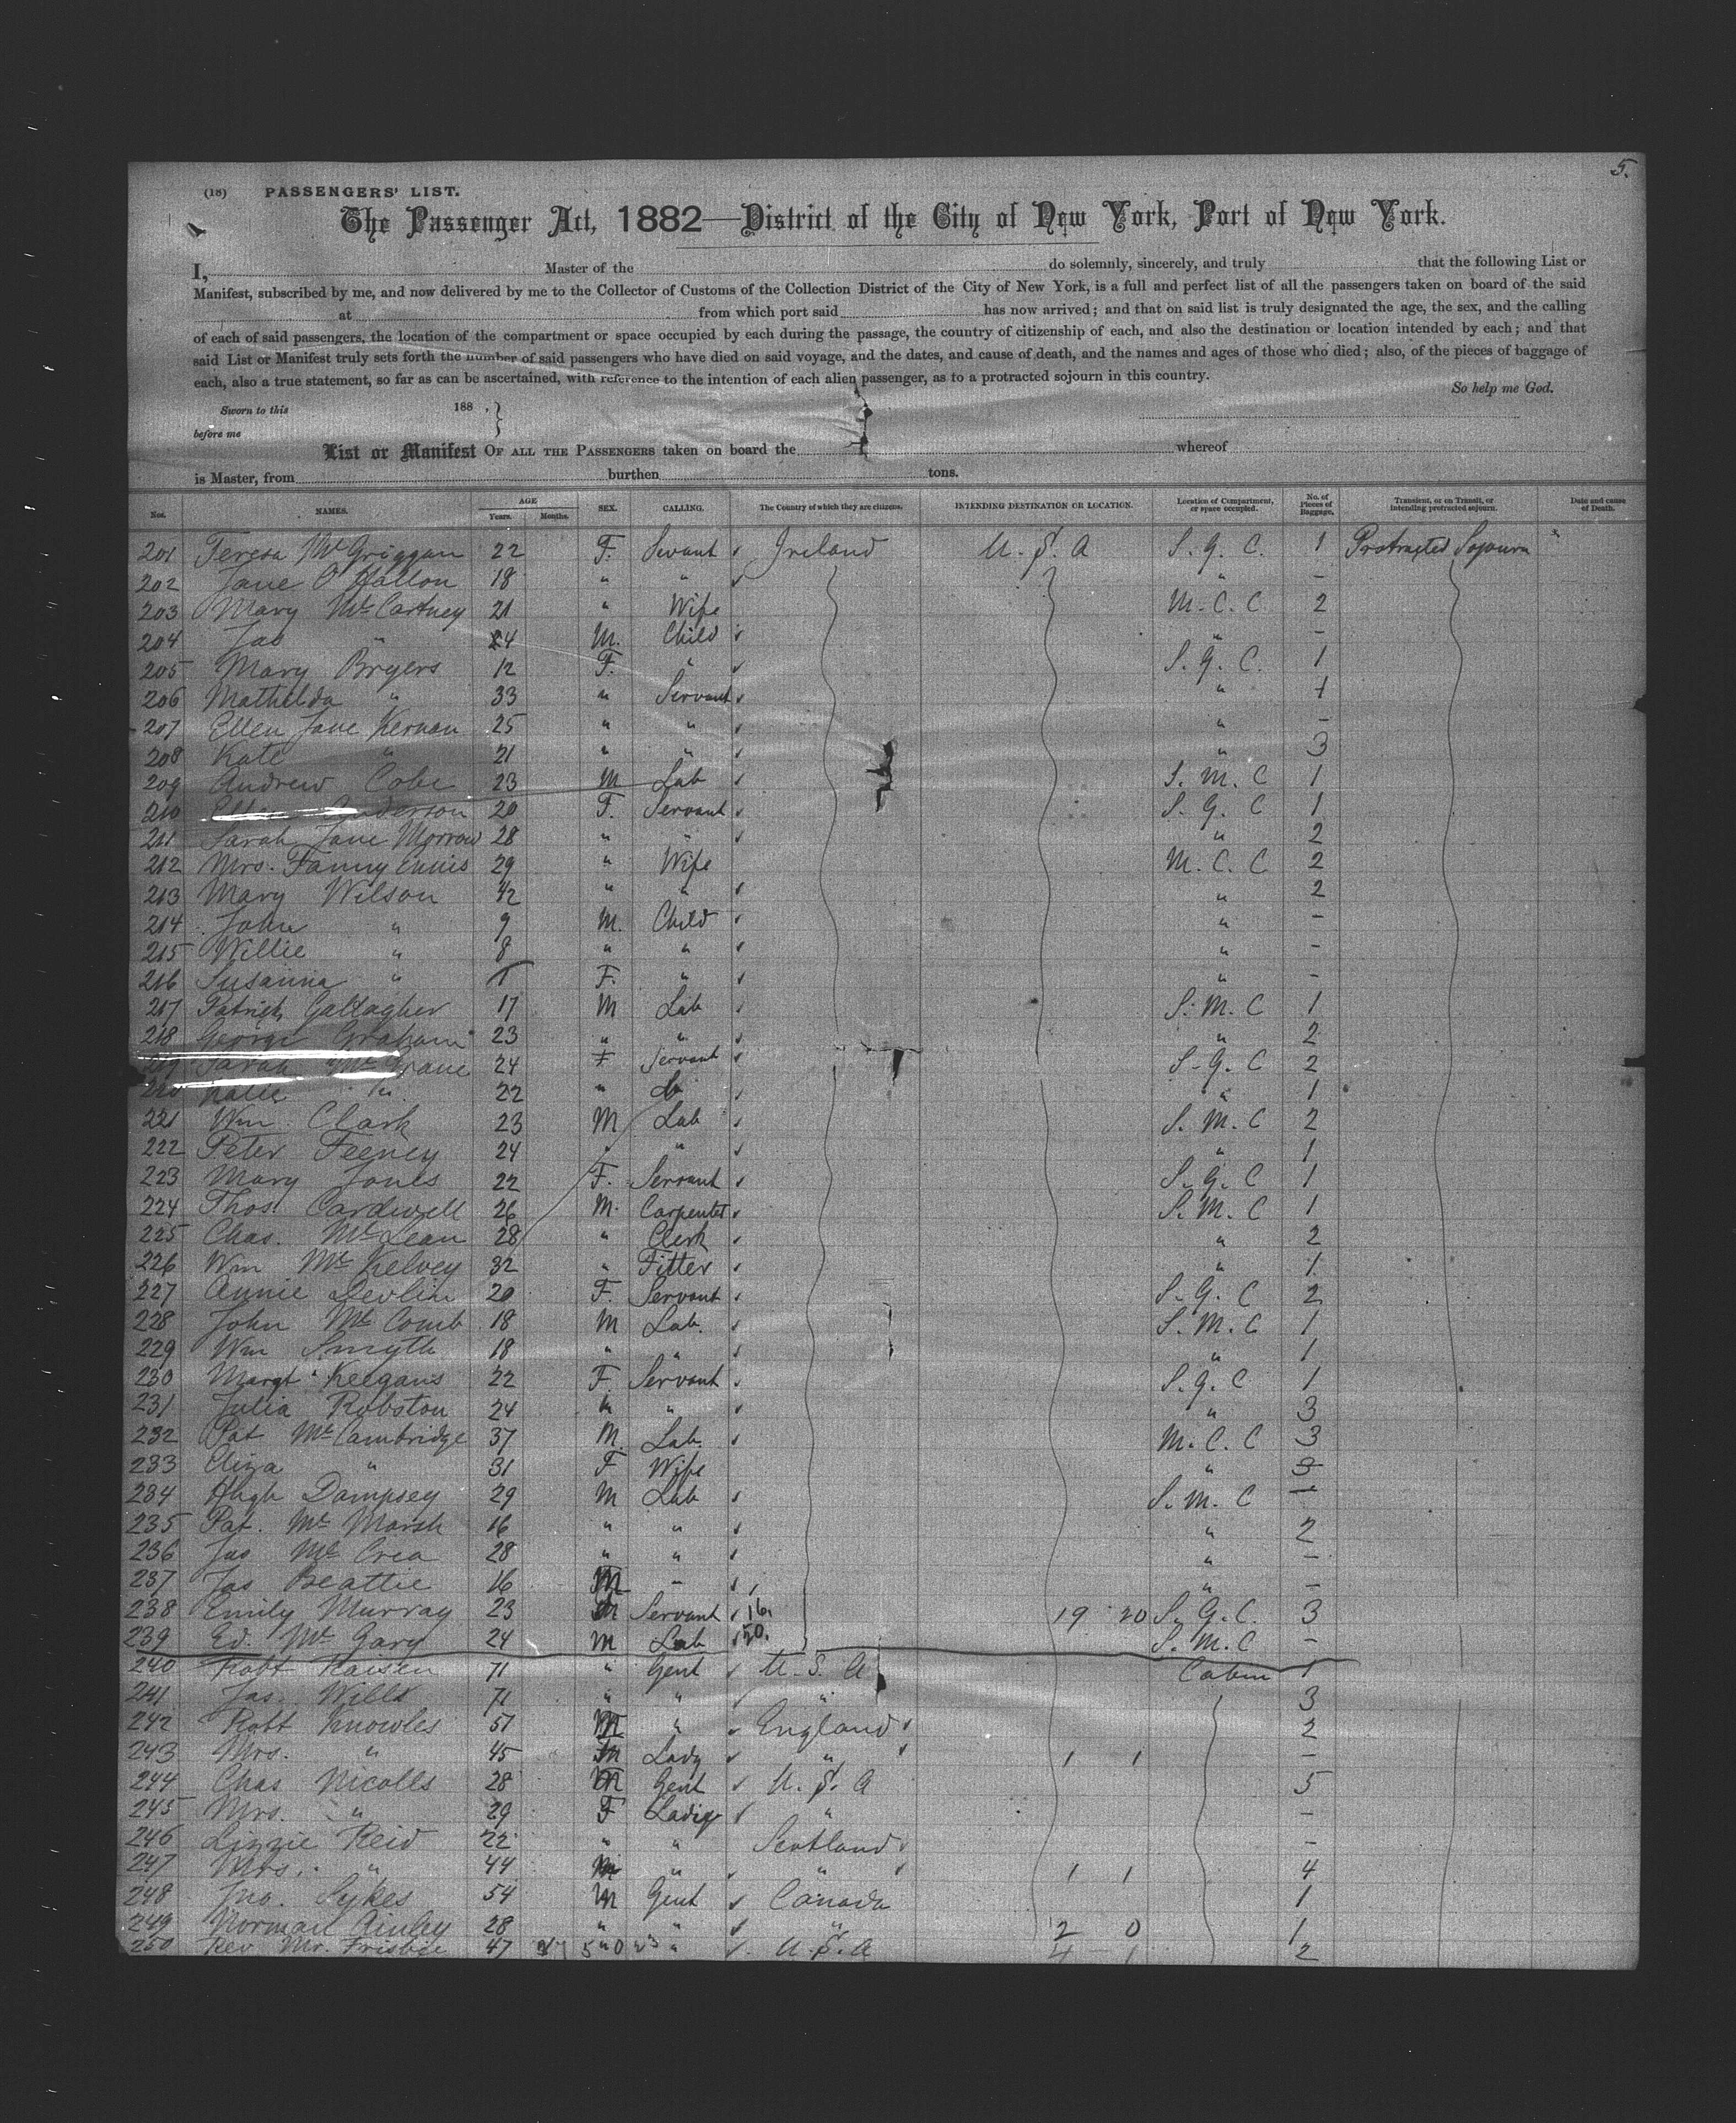 5.
(18) PASSENGERS' LIST.
The Passenger Act, 1882—District of the City of New York, Port of New York.
I, Master of the do solemnly, sincerely, and truly that the following List or
Manifest, subscribed by me, and now delivered by me to the Collector of Customs of the Collection District of the City of New York, is a full and perfect list of all the passengers taken on board of the said
at from which port said has now arrived; and that on said list is truly designated the age, the sex, and the calling
of each of said passengers, the location of the compartment or space occupied by each during the passage, the country of citizenship of each, and also the destination or location intended by each; and that
said List or Manifest truly sets forth the number of said passengers who have died on said voyage, and the dates, and cause of death, and the names and ages of those who died; also, of the pieces of baggage of
each, also a true statement, so far as can be ascertained, with reference to the intention of each alien passenger, as to a protracted sojourn in this country.
So help me God.
Sworn to this 188 , }
before me
List or Manifest OF ALL THE PASSENGERS taken on board the whereof
is Master, from burthen tons.
Nos. NAMES. AGE Years. Months. SEX. CALLING. The Country of which they are citizens. INTENDING DESTINATION OR LOCATION. Location of Compartment, or space occupied. No. of Pieces of Baggage. Transient, or on Transit, or intending protracted sojourn. Date and cause of Death.
201 Teresa McGriggan 22 F. Servant Ireland U.S.A S.G.C. 1 Protracted Sojourn
202 Jane O'Hallon 18 " " " -
203 Mary McCartney 21 " Wife M.C.C 2
204 Jas " 4 M. Child " -
205 Mary Bryers 12 F. " S.G.C. 1
206 Mathilda " 33 " Servant " 1
207 Ellen Jane Kernan 25 " " " -
208 Kate " 21 " " " 3
209 Andrew Cobe 23 M Lab S.M.C 1
210 Anderson 20 F. Servant S.G.C 1
211 Sarah Jane Morrow 28 " " " 2
212 Mrs. Fanny Ennis 29 " Wife M.C.C 2
213 Mary Wilson 42 " " " 2
214 John " 9 M. Child " -
215 Willie " 8 " " " -
216 Susanna " F. " " -
217 Patrick Gallagher 17 M Lab S.M.C 1
218 George Graham 23 " " " 2
219 Sarah 24 F Servant S.G.C 2
220 Katie " 22 " Do " 1
221 Wm. Clark 23 M Lab S.M.C 2
222 Peter Feeney 24 " " " 1
223 Mary Jones 22 F. Servant S.G.C 1
224 Thos. Cardwell 26 M. Carpenter S.M.C 1
225 Chas. McLean 28 " Clerk " 2
226 Wm McKelvey 32 " Fitter " 1
227 Annie Devlin 20 F. Servant S.G.C 2
228 John McComb 18 M Lab. S.M.C 1
229 Wm Smyth 18 " " " 1
230 Margt Keegans 22 F. Servant S.G.C 1
231 Julia Robston 24 " " " 3
232 Pat McCambridge 37 M. Lab. M.C.C 3
233 Eliza " 31 F Wife " 3
234 Hugh Dampsey 29 M Lab S.M.C -
235 Pat. McMarsh 16 " " " 2
236 Jas McCrea 28 " " " -
237 Jas Beattie 16 M - " -
238 Emily Murray 23 Servant 16. 19 20 S.G.C. 3
239 Ed. McGary 24 M Lab 50. S.M.C -
240 Robt Kaisen 71 " Gent U.S.A Cabin 1
241 Jas. Wills 71 " " " 3
242 Robt Knowles 51 M " England 2
243 Mrs. " 45 Lady " 1 1 -
244 Chas Nicolls 28 M Gent U.S.A 5
245 Mrs. " 29 F Ladies " -
246 Lizzie Reid 22 " " Scotland -
247 Mrs. " 44 " " 1 1 4
248 Jno. Sykes 54 M Gent Canada 1
249 Norman 28 " " " 2 0 1
250 Rev Mr. Frisbie 47 " U.S.A 4 1 2